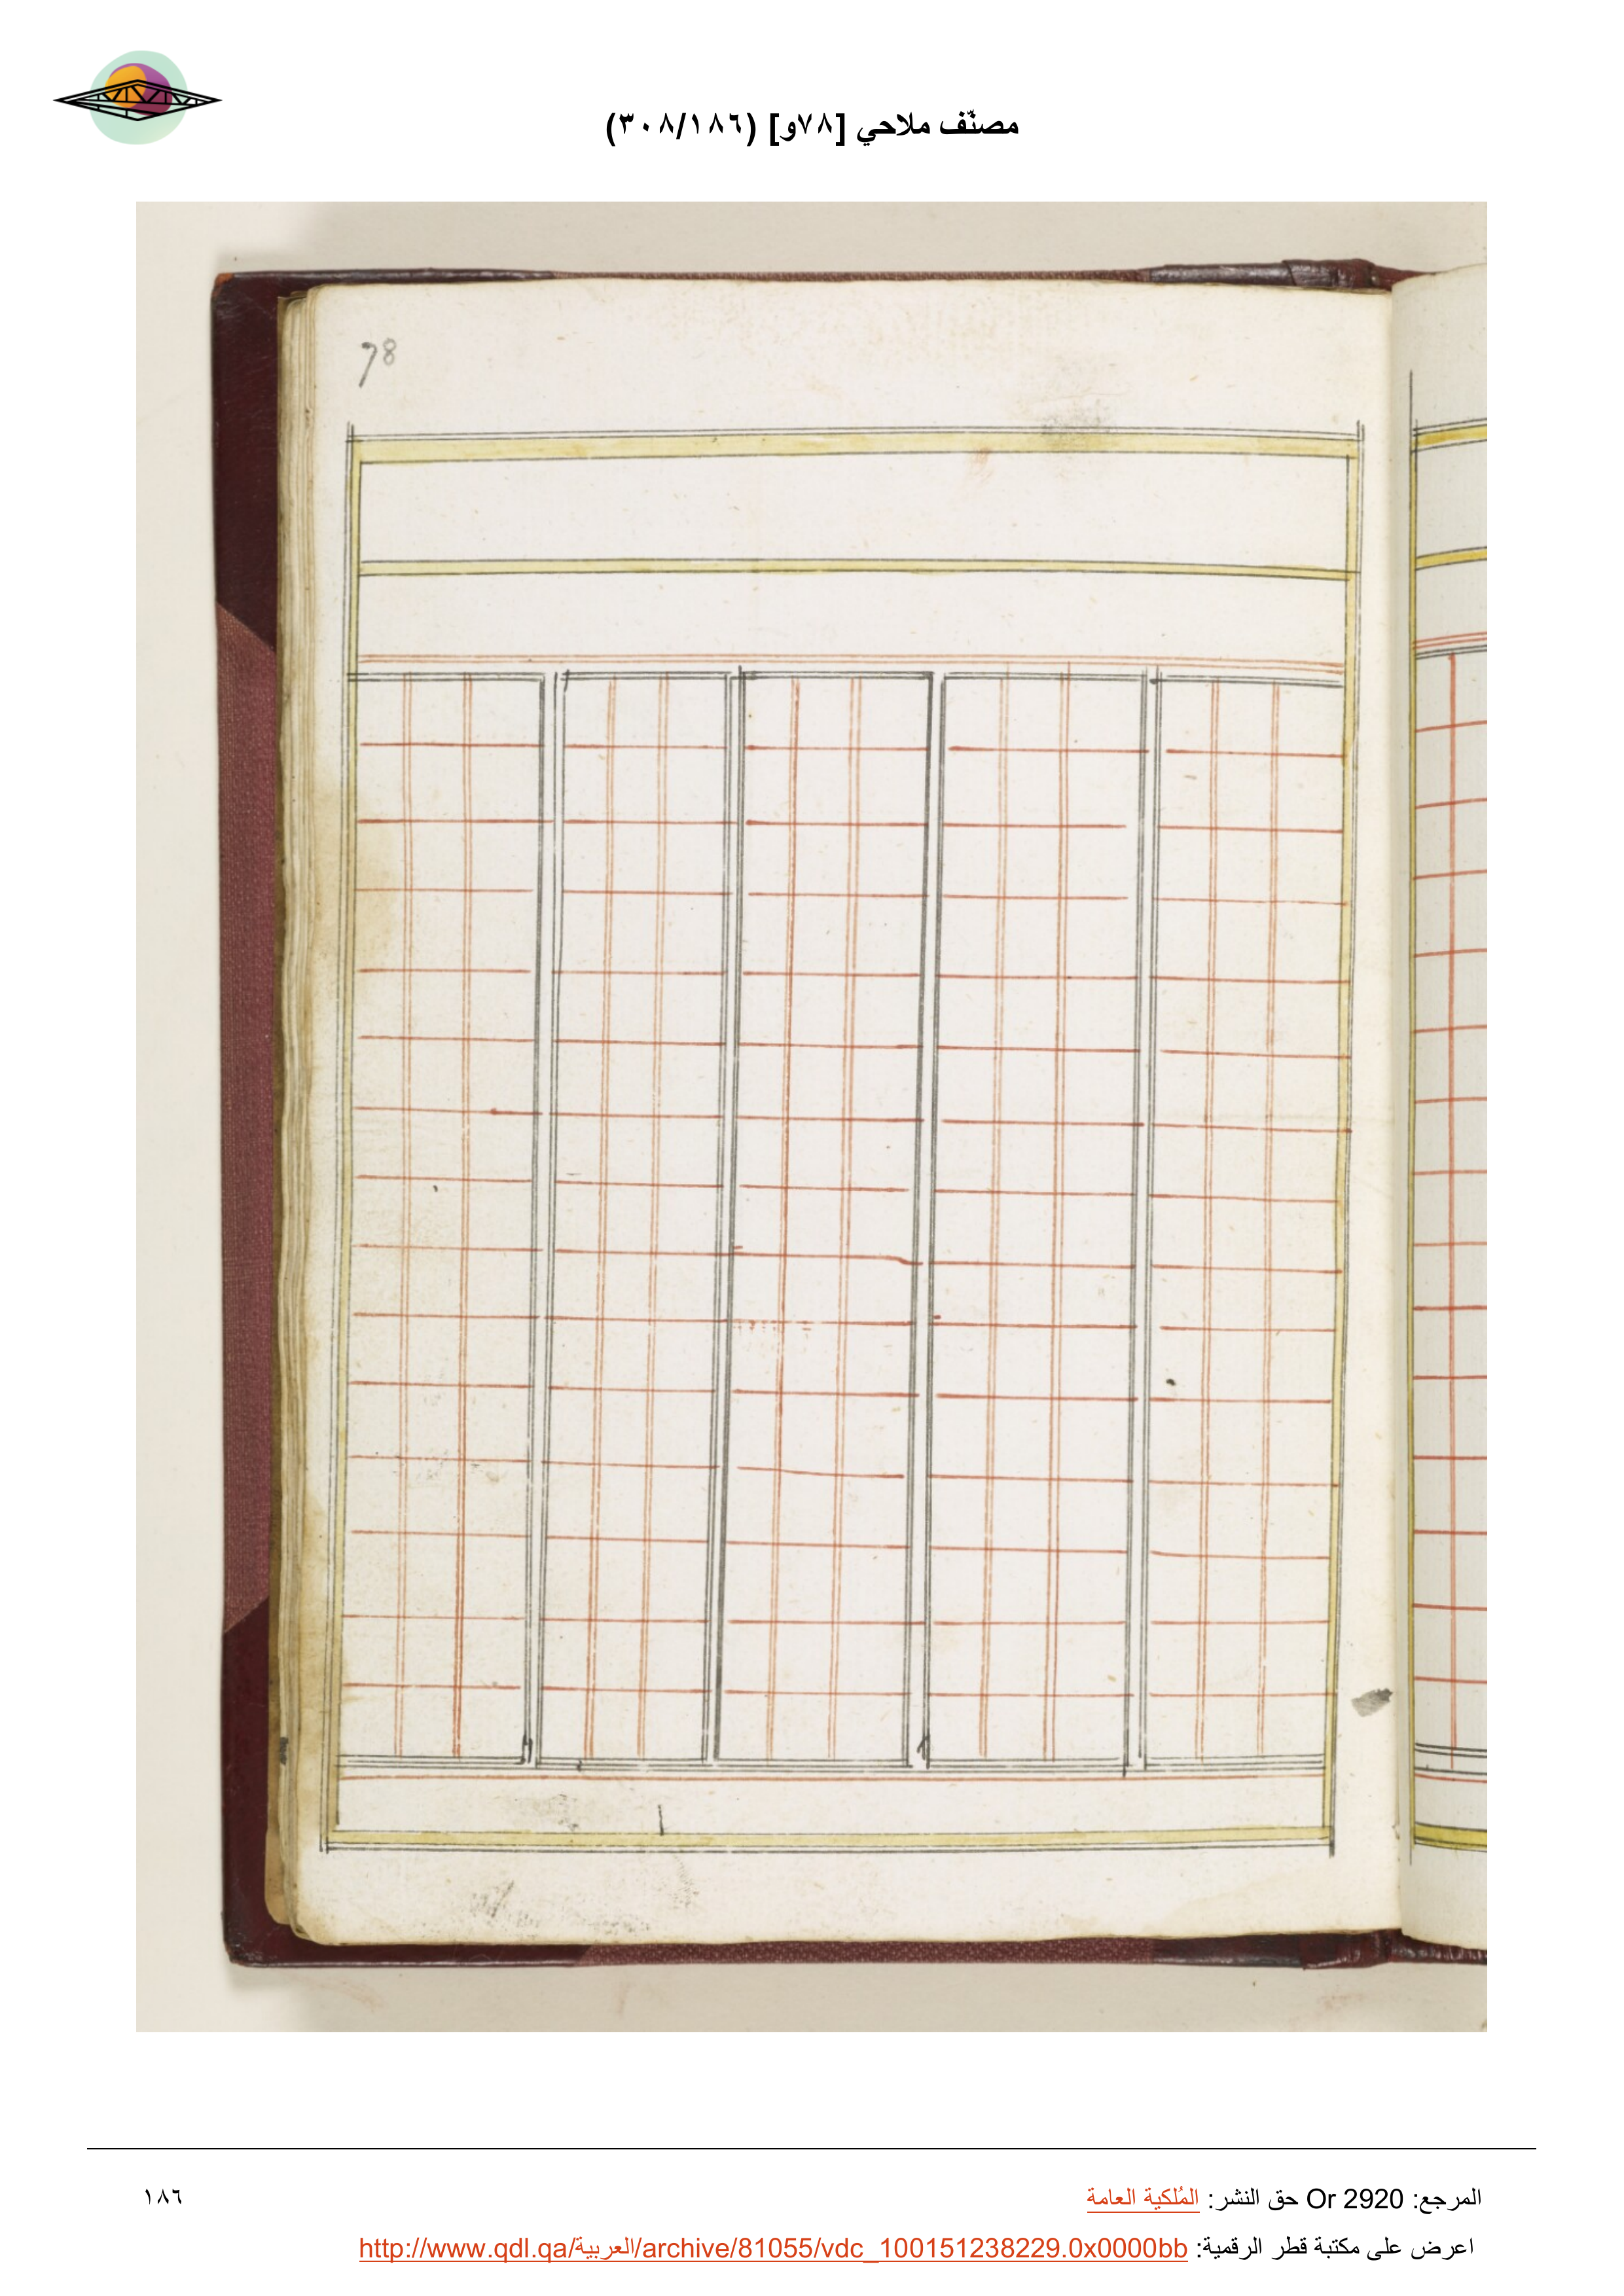 مصنّف ملاحي [٧٨و] (٣٠٨/١٨٦)
78
المرجع: Or 2920 حق النشر: المُلكية العامة
١٨٦
اعرض على مكتبة قطر الرقمية: http://www.qdl.qa/العربية/archive/81055/vdc_100151238229.0x0000bb